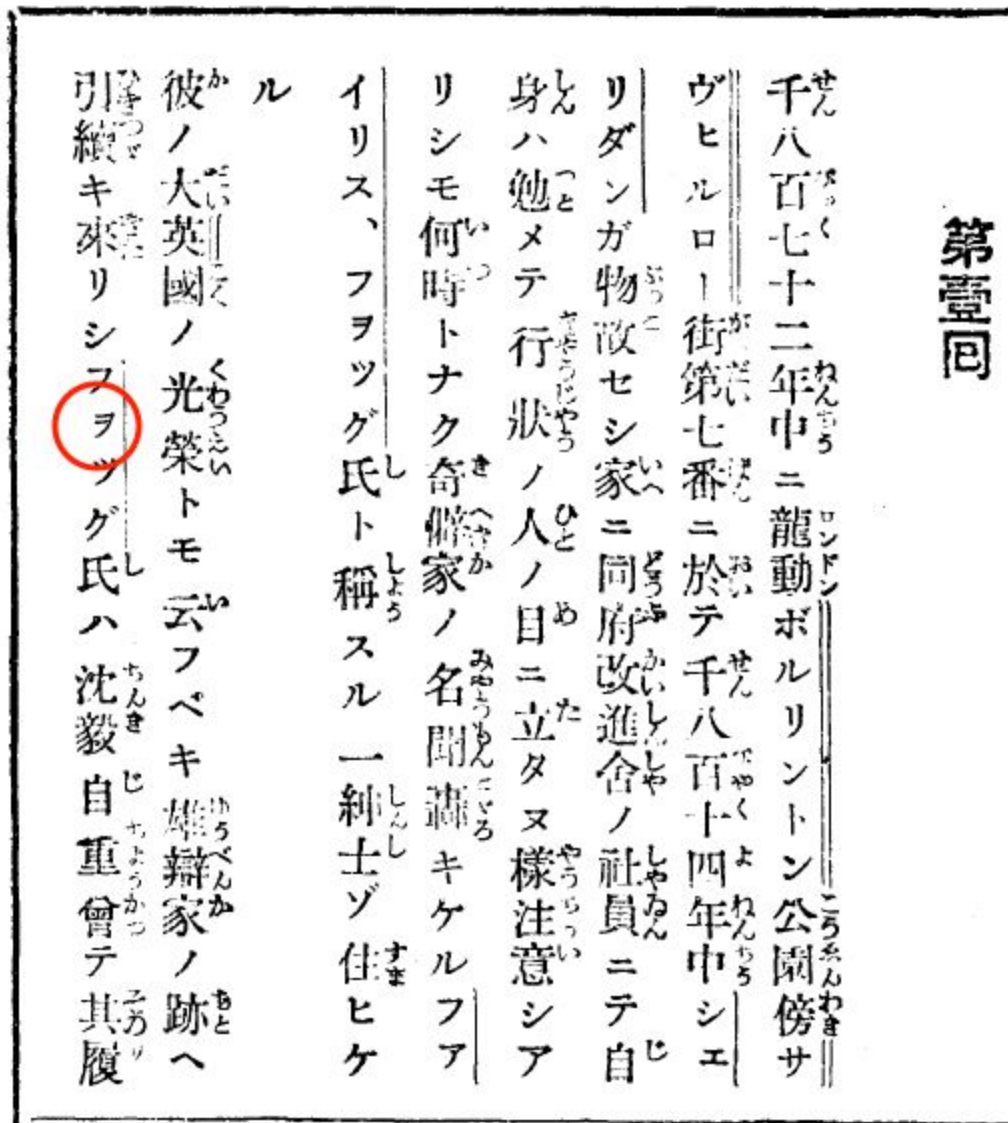 第壹囘
千八百七十二年中ニ龍動ボルリントン公園傍サ
ヴヒルロー街第七番ニ於テ千八百十四年中シエ
リダンガ物故セシ家ニ同府改進舎ノ社員ニテ自
身ハ勉メテ行狀ノ人ノ目ニ立タヌ樣注意シア
リシモ何時トナク奇僻家ノ名聞轟キケルフア
イリス、フヲッグ氏ト稱スル一紳士ゾ住ヒケ
ル
彼ノ大英國ノ光榮トモ云フベキ雄辯家ノ跡ヘ
引續キ來リシフヲツグ氏ハ沈毅自重曾テ其履